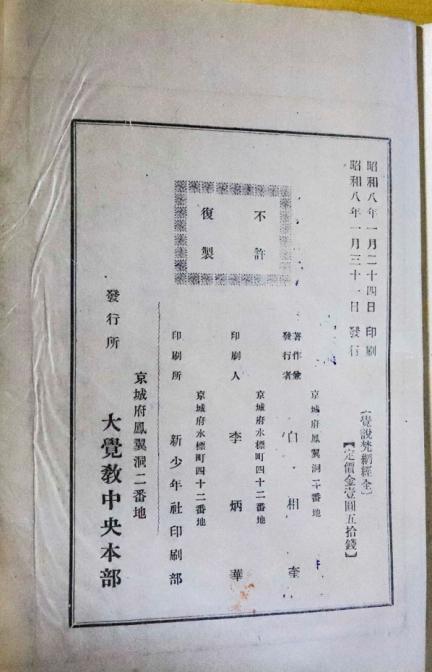 昭和八年一月二十四日 印刷
昭和八年一月三十一日 發行
覺說梵網經全
【定價金壹圓五拾錢】
不許
復製
京城府鳳翼洞二番地
著作兼
發行者 白相奎
京城府水標町四十二番地
印刷人 李炳華
京城府水標町四十二番地
印刷所 新少年社印刷部
京城府鳳翼洞二番地
發行所 大覺敎中央本部